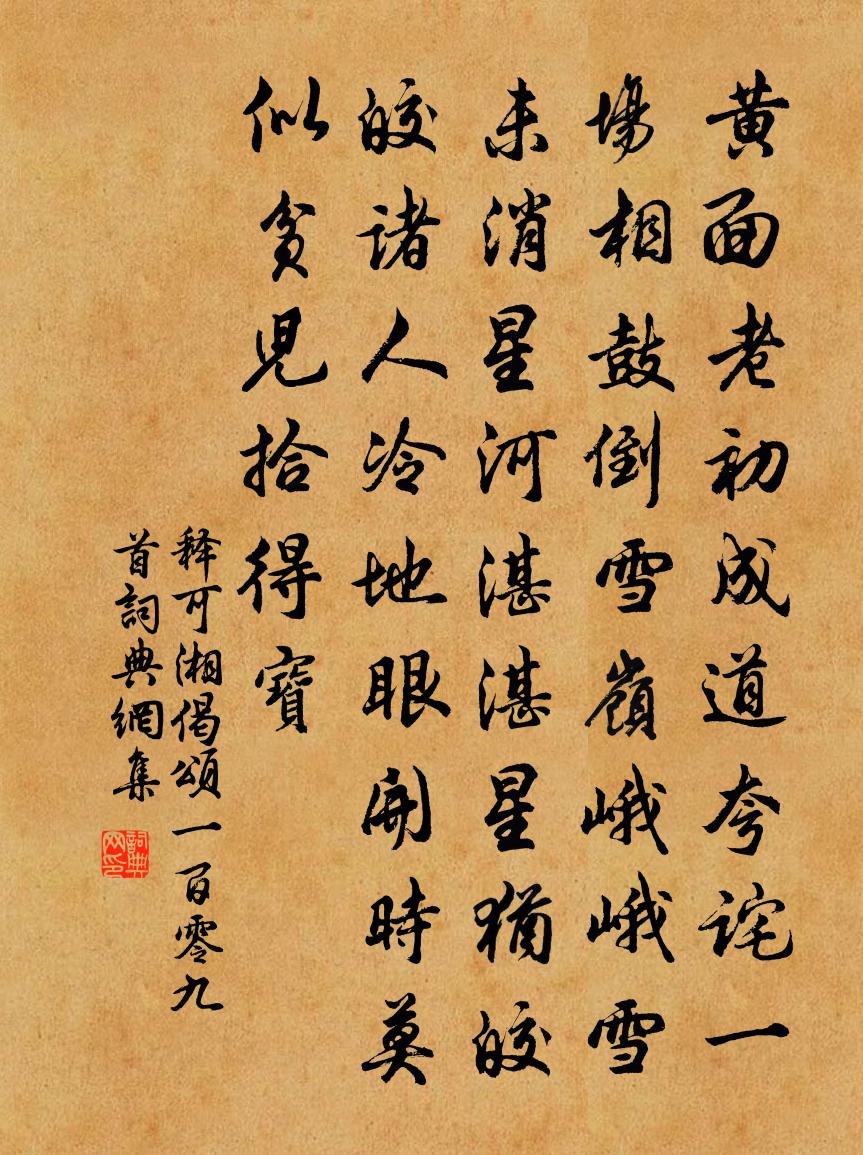 黄面老初成道夸詫一
場相鼓倒雪嶺峨峨雪
未消星河湛湛星猶皎
皎諸人冷地眼開時莫
似貧児拾得寶
释可湘偈頌一百零九
首詞典網集
詞典网印